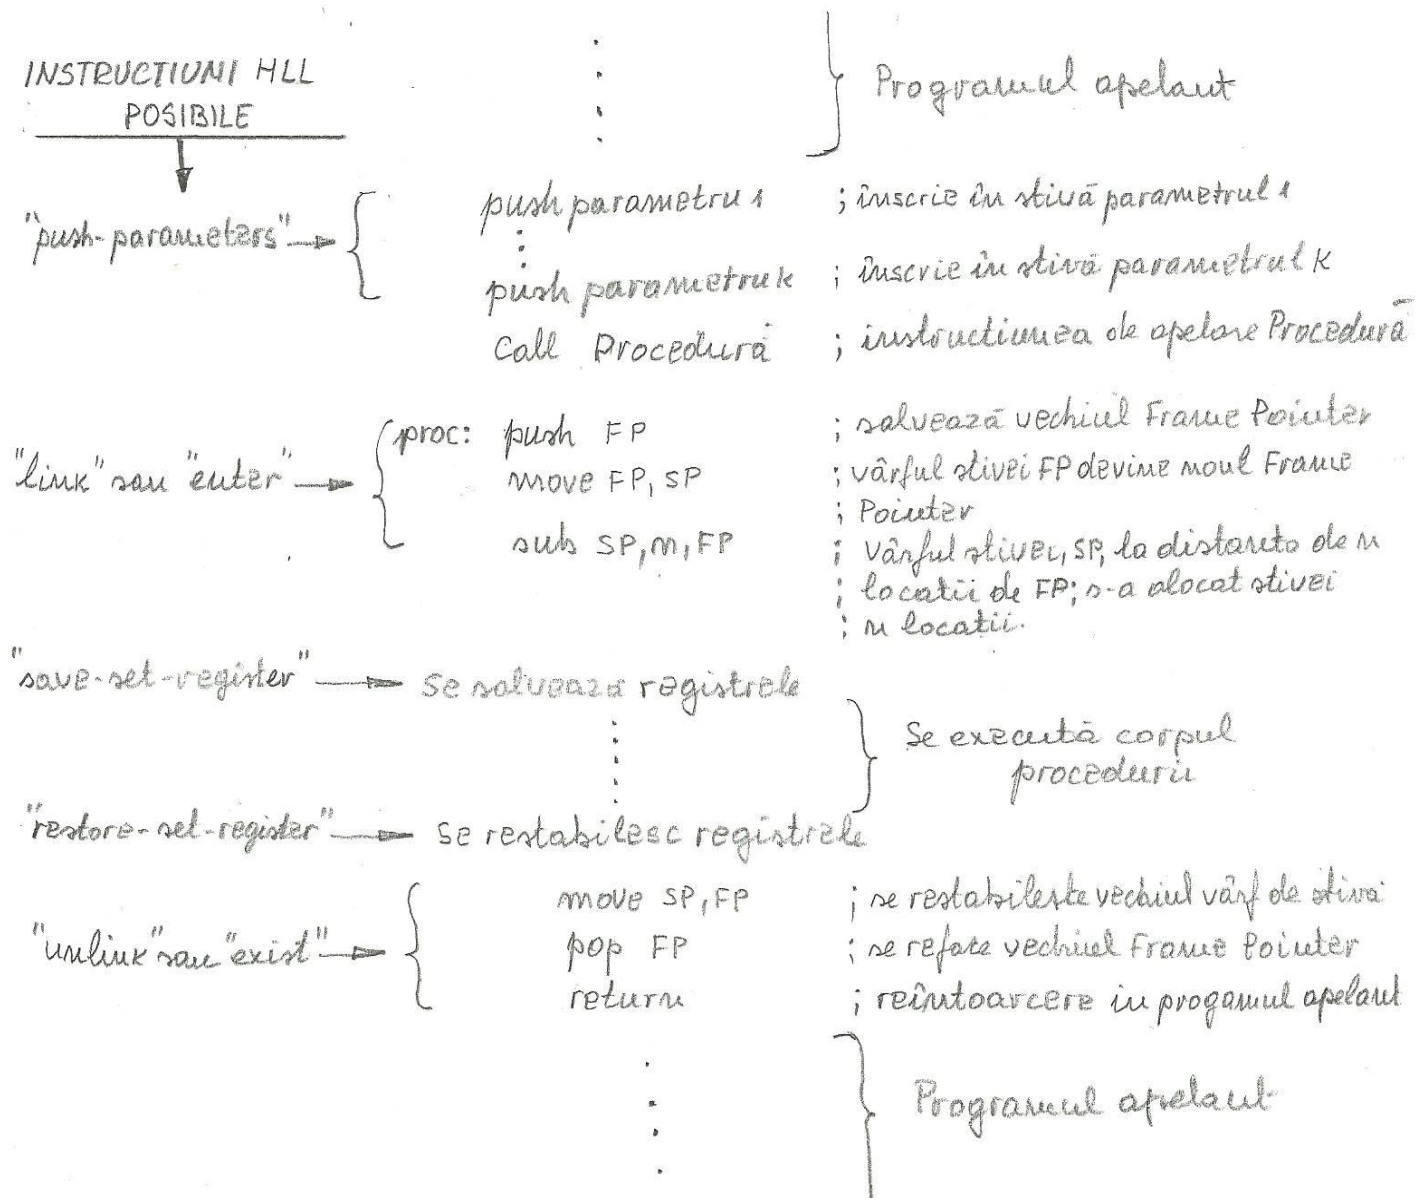 INSTRUCTIUNI HLL
POSIBILE
Programul apelant
"push-parameters"
push parametru 1 ; înscrie în stivă parametrul 1
push parametru k ; înscrie în stivă parametrul K
Call Procedură ; instructiunea de apelare Procedură
"link" sau "enter"
proc: push FP ; salvează vechiul Frame Pointer
move FP, SP ; vârful stivei FP devine noul Frame
; Pointer
sub SP, n, FP ; Vârful stivei, SP, la distanta de n
; locatii de FP; s-a alocat stivei
; n locatii.
"save-set-register" Se salvează registrele
Se execută corpul
procedurii
"restore-set-register" Se restabilesc registrele
"unlink" sau "exist"
move SP, FP ; se restabileste vechiul vârf de stivă
pop FP ; se reface vechiul Frame Pointer
return ; reîntoarcere in progamul apelant
Programul apelant